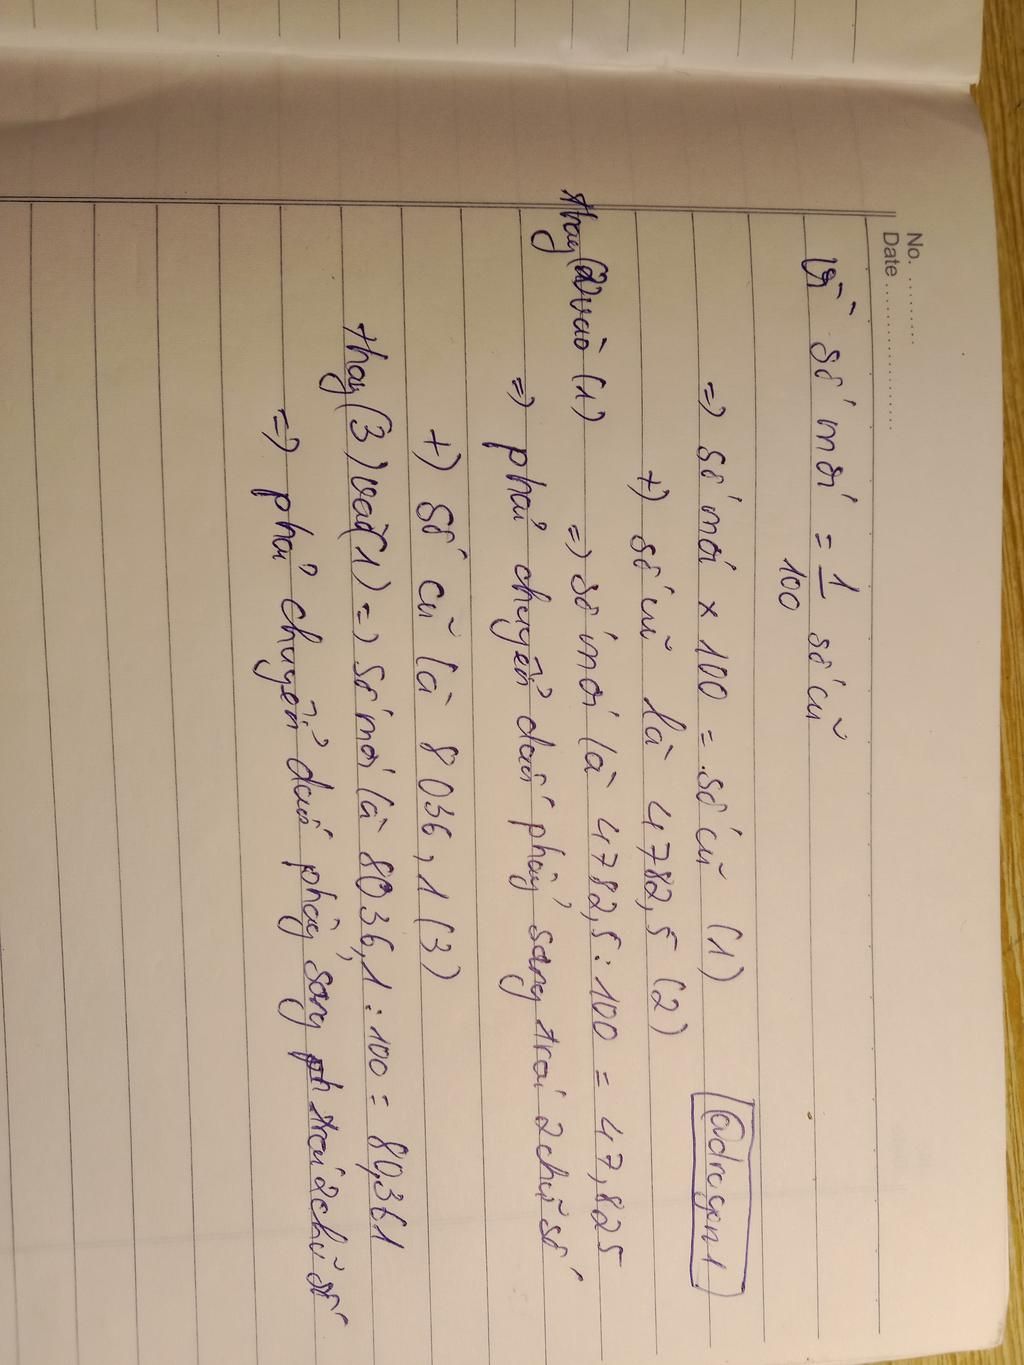 No. ..........
Date .....................
Vì số mới = 1/100 số cũ
=> số mới × 100 = số cũ (1)
@dragon1
+) số cũ là 4782,5 (2)
thay (2) vào (1) => số mới là 4782,5 : 100 = 47,825
=> phải chuyển dấu phẩy sang trái 2 chữ số
+) Số cũ là 8036,1 (3)
thay (3) vào (1) => số mới là 8036,1 : 100 = 80,361
=> phải chuyển dấu phẩy sang trái 2 chữ số